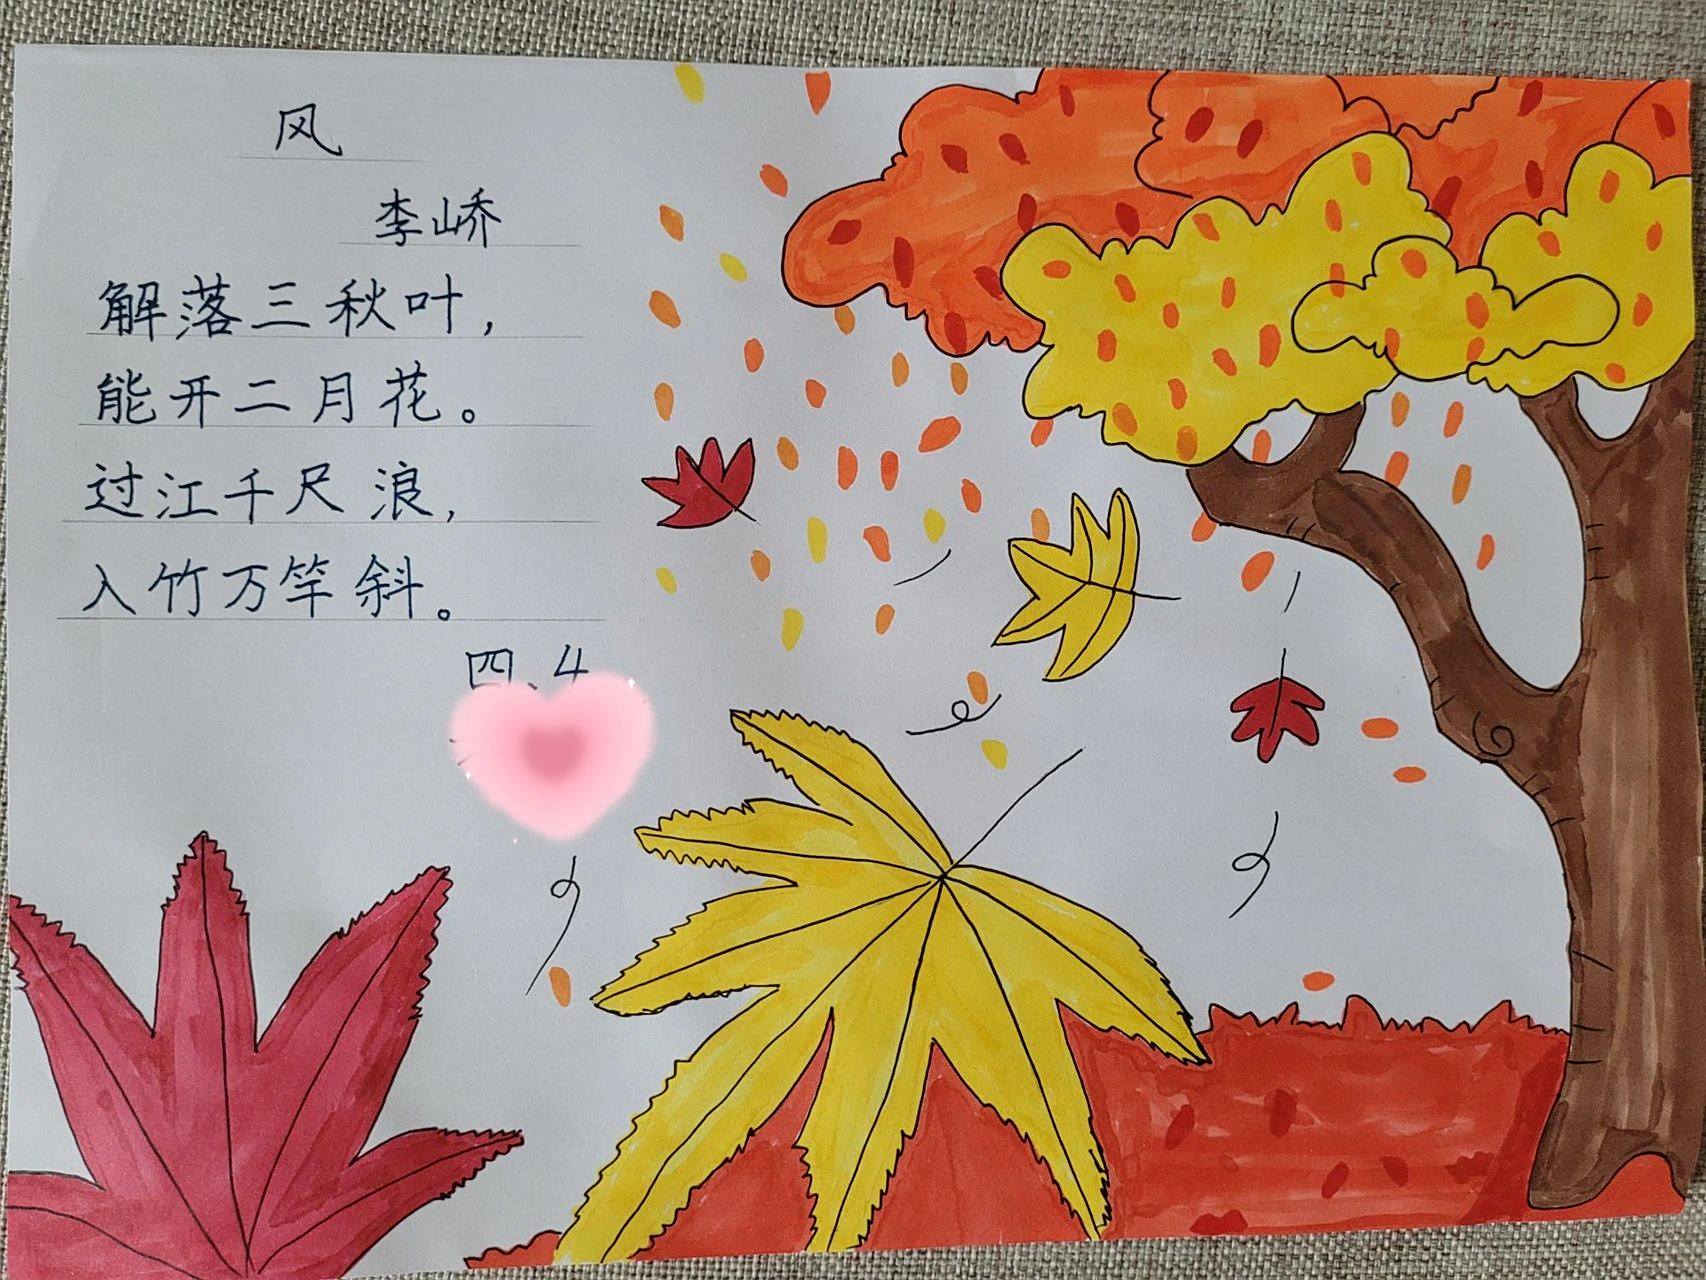 风
李峤
解落三秋叶，
能开二月花。
过江千尺浪，
入竹万竿斜。
四、4